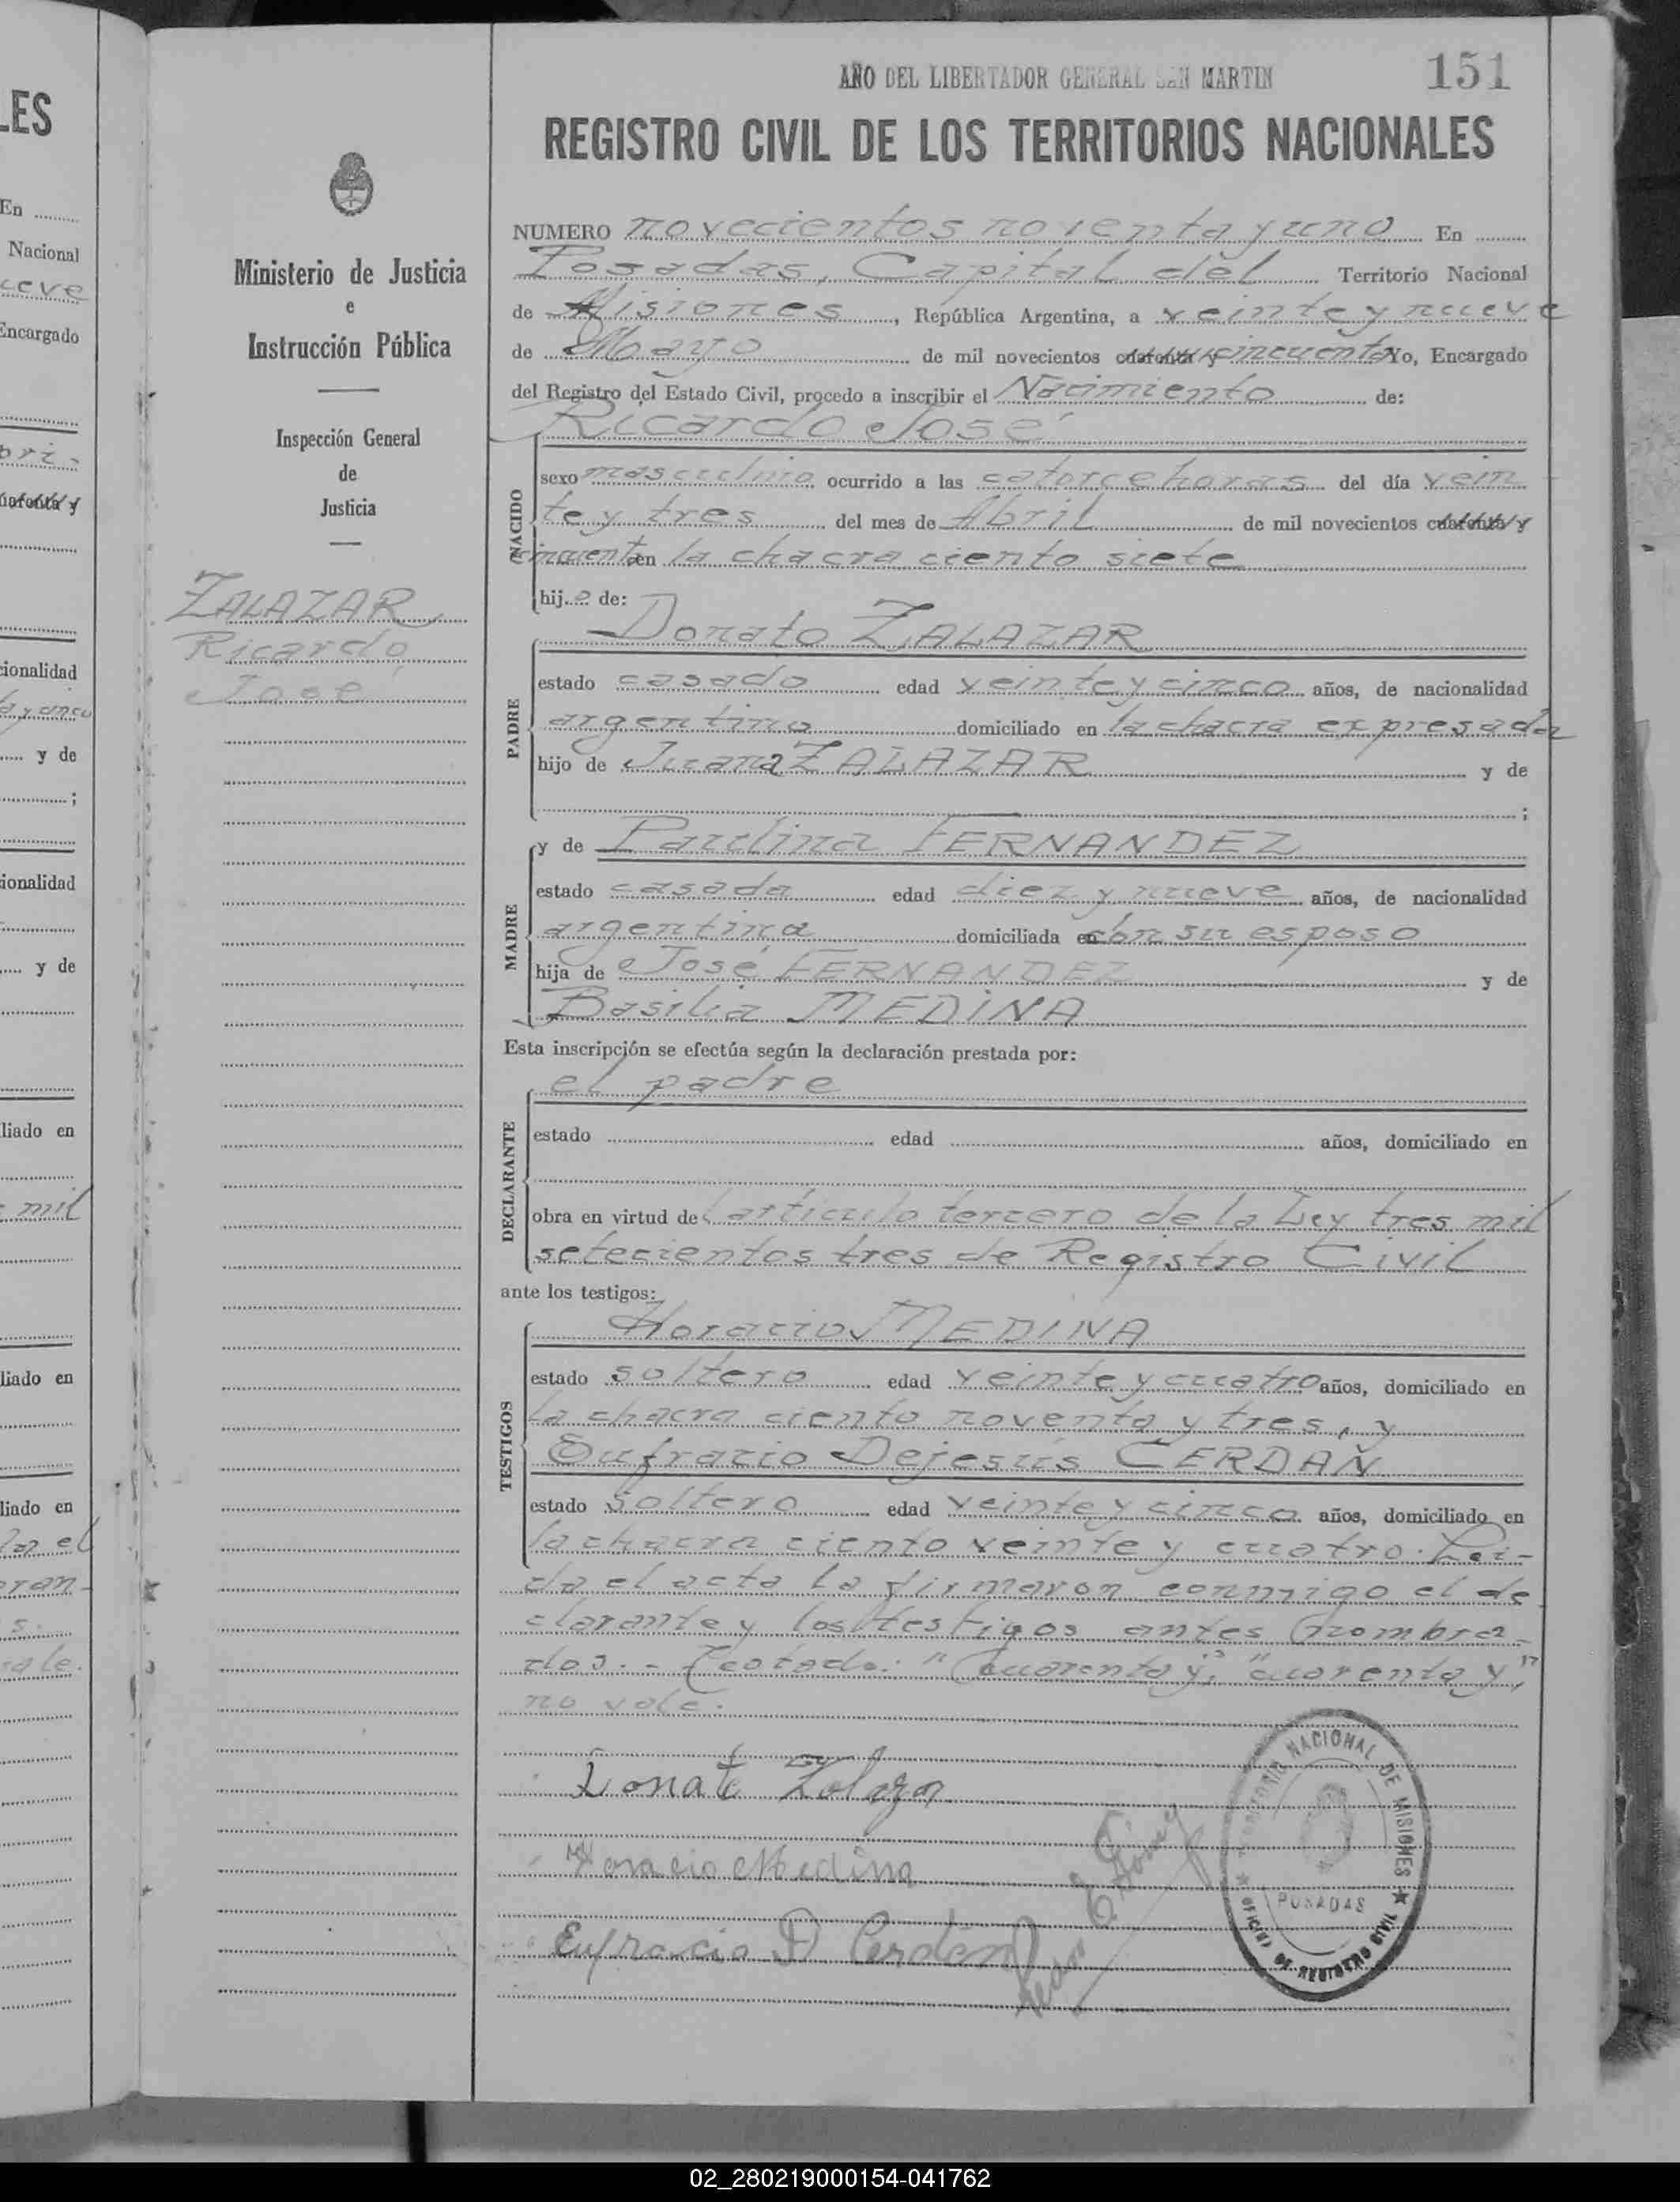 LES
En
Nacional
ceve
Encargado
cionalidad
y de
;
ionalidad
y de
liado en
mil
liado en
liado en
Ministerio de Justicia
e
Instrucción Pública
Inspección General
de
Justicia
ZALAZAR
Ricardo
José
AÑO DEL LIBERTADOR GENERAL SAN MARTIN
151
REGISTRO CIVIL DE LOS TERRITORIOS NACIONALES
NUMERO novecientos noventa y uno En
Posadas, Capital del Territorio Nacional
de Misiones, República Argentina, a veinte y nueve
de Mayo de mil novecientos cuarenta y cincuenta Yo, Encargado
del Registro del Estado Civil, procedo a inscribir el Nacimiento de:
Ricardo José
NACIDO
sexo masculino ocurrido a las catorce horas del día vein
te y tres del mes de Abril de mil novecientos cuarenta y
cincuenta en la chacra ciento siete
hijo de:
Donato ZALAZAR
PADRE
estado casado edad veinte y cinco años, de nacionalidad
argentino domiciliado en la chacra expresada
hijo de Juana ZALAZAR y de
;
y de Paulina FERNANDEZ
MADRE
estado casada edad diez y nueve años, de nacionalidad
argentina domiciliada en con su esposo
hija de José FERNANDEZ y de
Basilia MEDINA
Esta inscripción se efectúa según la declaración prestada por:
el padre
DECLARANTE
estado edad años, domiciliado en
obra en virtud del artículo tercero de la Ley tres mil
setecientos tres de Registro Civil
ante los testigos:
Horacio MEDINA
TESTIGOS
estado soltero edad veinte y cuatro años, domiciliado en
la chacra ciento noventa y tres, y
Eufracio Dejesús CERDAN
estado soltero edad veinte y cinco años, domiciliado en
la chacra ciento veinte y cuatro. Leí-
da el acta la firmaron conmigo el de
clarante y los testigos antes nombra-
dos.- Testado: "Cuarenta y", "cuarenta y",
no vale.
Donato Zalazar
Horacio Medina
Eufracio D Cerdán
TERRITORIO NACIONAL DE MISIONES
POSADAS
OFICINA DE REGISTRO CIVIL
02_280219000154-041762